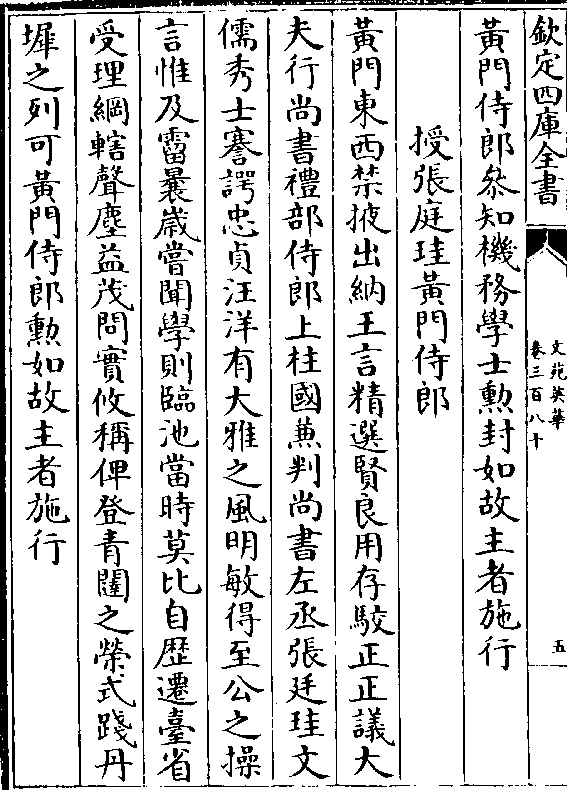 欽定四庫全書
文苑英華
卷三百八十
五
黃門侍郎叅知機務學士勲封如故主者施行
授張庭珪黃門侍郎
黃門東西禁掖出納王言精選賢良用存駮正正議大
夫行尚書禮部侍郎上柱國兼判尚書左丞張廷珪文
儒秀士謇諤忠貞汪洋有大雅之風明敏得至公之操
言惟及霤曩歳嘗聞學則臨池當時莫比自歴遷臺省
受理綱轄聲塵益茂問實攸稱俾登青闥之榮式踐丹
墀之列可黃門侍郎勲如故主者施行